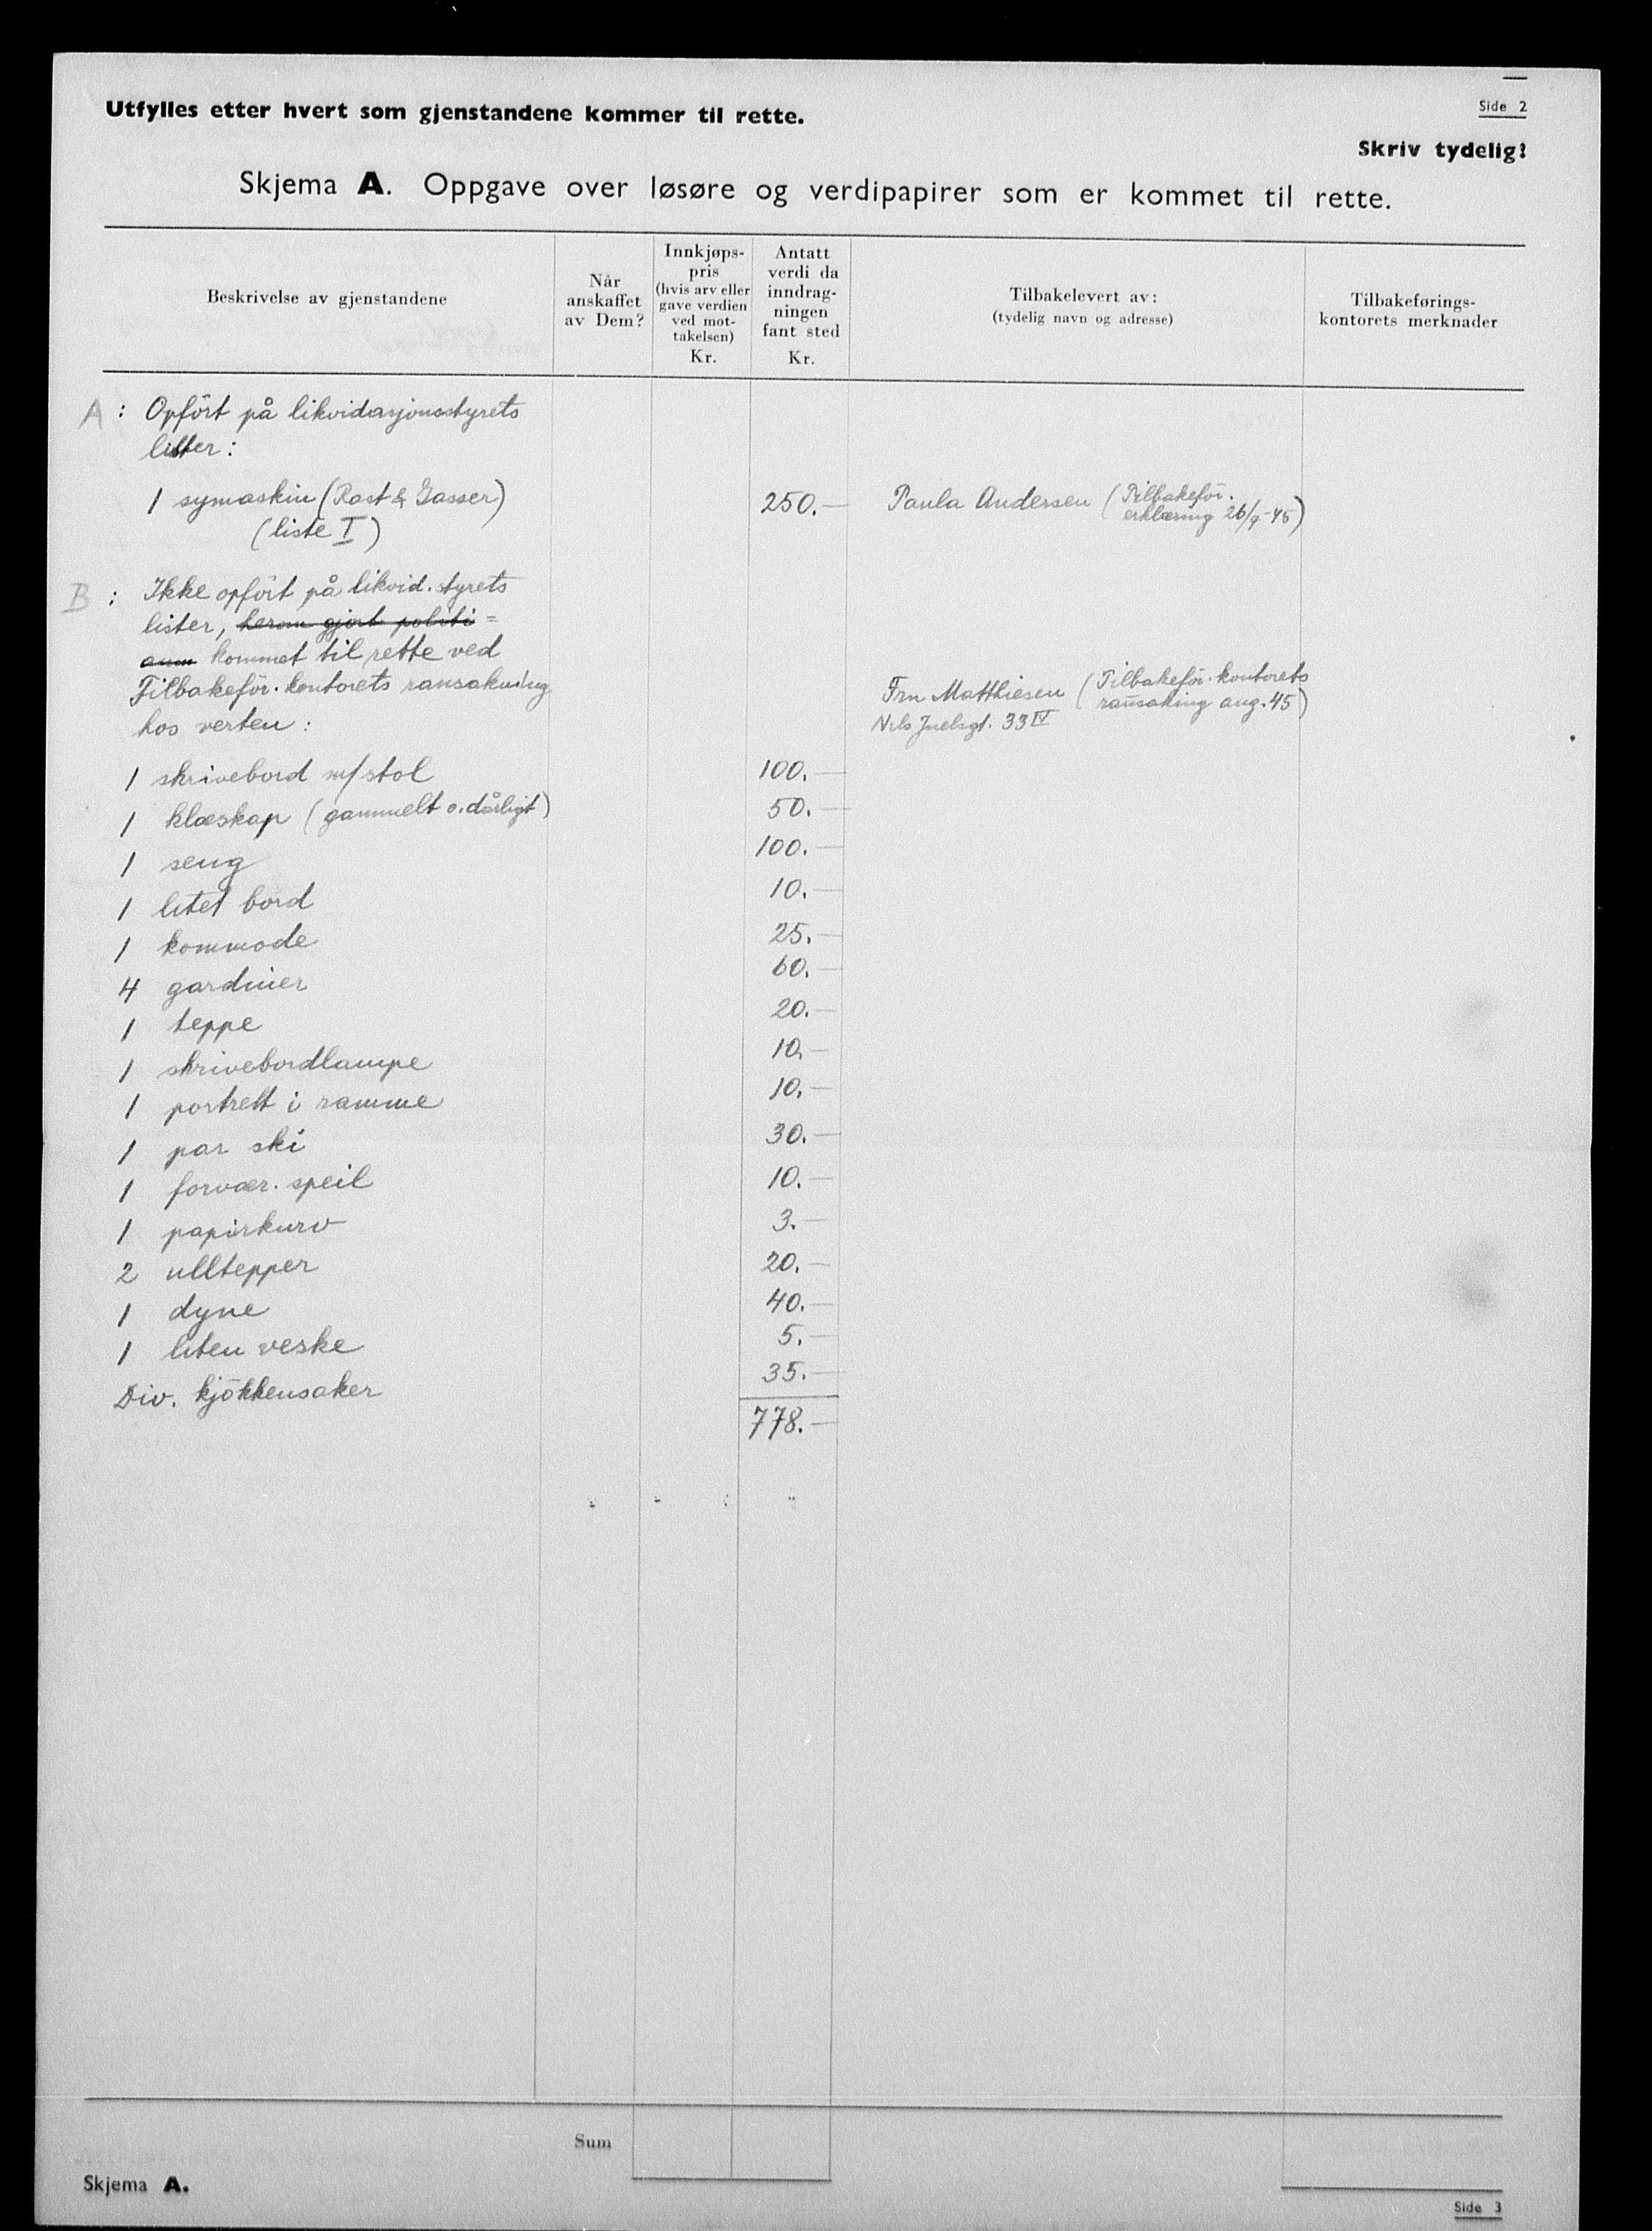 Side 2
Utfylles etter hvert som gjenstandene kommer til rette.
Skriv tydelig!
Skjema A. Oppgave over løsøre og verdipapirer som er kommet til rette.
Beskrivelse av gjenstandene
Når
anskaffet
av Dem?
Innkjøps-
pris
(hvis arv eller
gave verdien
ved mot-
takelsen)
Kr.
Antatt
verdi da
inndrag-
ningen
fant sted
Kr.
Tilbakelevert av:
(tydelig navn og adresse)
Tilbakeførings-
kontorets merknader
A : Opført på likvidasjonsstyrets
lister:
1 symaskin (Rast & Gasser) 250.— Paula Andersen (Tilbakefør.
erklæring 26/9-45)
(liste I)
B : Ikke opført på likvid.styrets
lister, herom gjort politi=
anm kommet til rette ved
Tilbakefør.kontorets ransakning
hos verten:
Fru Matthiesen (Tilbakefør.kontorets
Nils Juelsgt. 33 IV ransaking aug. 45)
1 skrivebord m/stol 100.—
1 klæskap (gammelt o. dårligt) 50.—
1 seng 100.—
1 litet bord 10.—
1 kommode 25.—
4 gardiner 60.—
1 teppe 20.—
1 skrivebordlampe 10.—
1 portrett i ramme 10.—
1 par ski 30.—
1 forvær. speil 10.—
1 papirkurv 3.—
2 ulltepper 20.—
1 dyne 40.—
1 liten veske 5.—
Div. kjøkkensaker 35.—
778.—
Sum
Skjema A.
Side 3